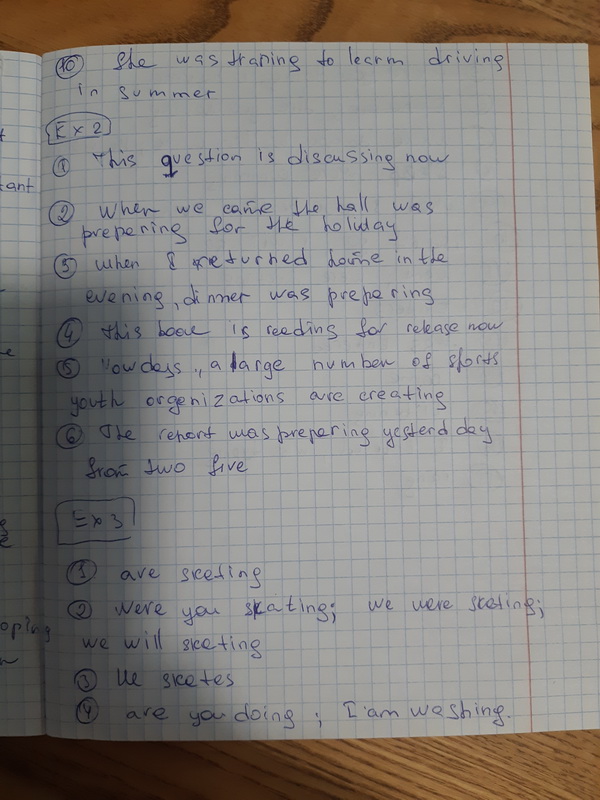 ⑩ She was traning to learm driving
in summer
Ex 2
① This question is discussing now
tant
② When we came the hall was
prepering for the holiday
③ when I returned home in the
evening, dinner was prepering
④ This booe is reeding for release now
⑤ Nowdays, a large number of sports
youth orgenizations are creating
⑥ The report was prepering yesterd day
from two five
Ex 3
① are sketing
② Were you skating; we were sketing;
oping we will sketing
③ He sketes
④ are you doing; I am weshing.